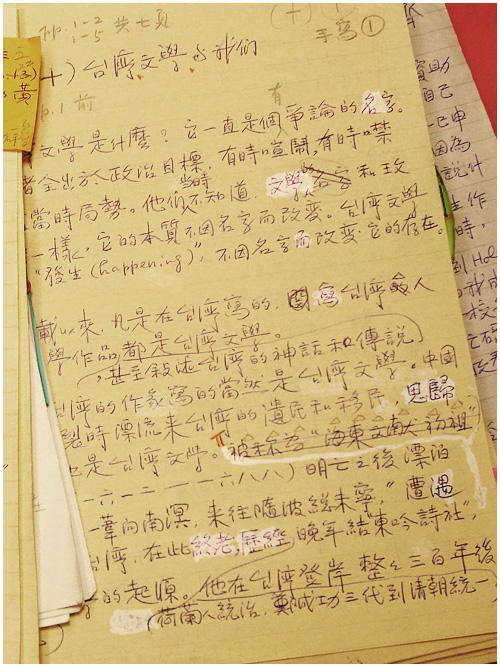 pp. 1-2 共七頁
1-5
(十)①
手寫①
十)台灣文學与我们
p.1 前
文學是什麼?它一直是個有爭論的名字。
者全出於政治目標,有時喧鬧,有時噤
當時局勢。他們當時不知道,文學的名字和玫
一樣,它的本質不因名字而改變。台灣文學
"發生(happening)",不因名字而改變它的存在。
載以來,凡是在台灣寫的,関寫台灣人
學作品都是台灣文學。
,甚至敍述台灣的神話和傳說
台灣的作家寫的當然是台灣文學。中國
裂時漂流來台灣的遺民和移民,思歸
也是台灣文學。被稱為"海東文獻初祖"
一六一二-一六八八)明亡之後漂泊
一葦向南溟,來往隨波總未寧,"遭遇
台灣,在此終老,歷經晚年結東吟詩社",
的起源。他在台灣登岸整整三百年後
(荷蘭人統治,鄭成功三代到清朝統一
黃
資助
自己
已申
因為
說什
生作
時,
到Hol